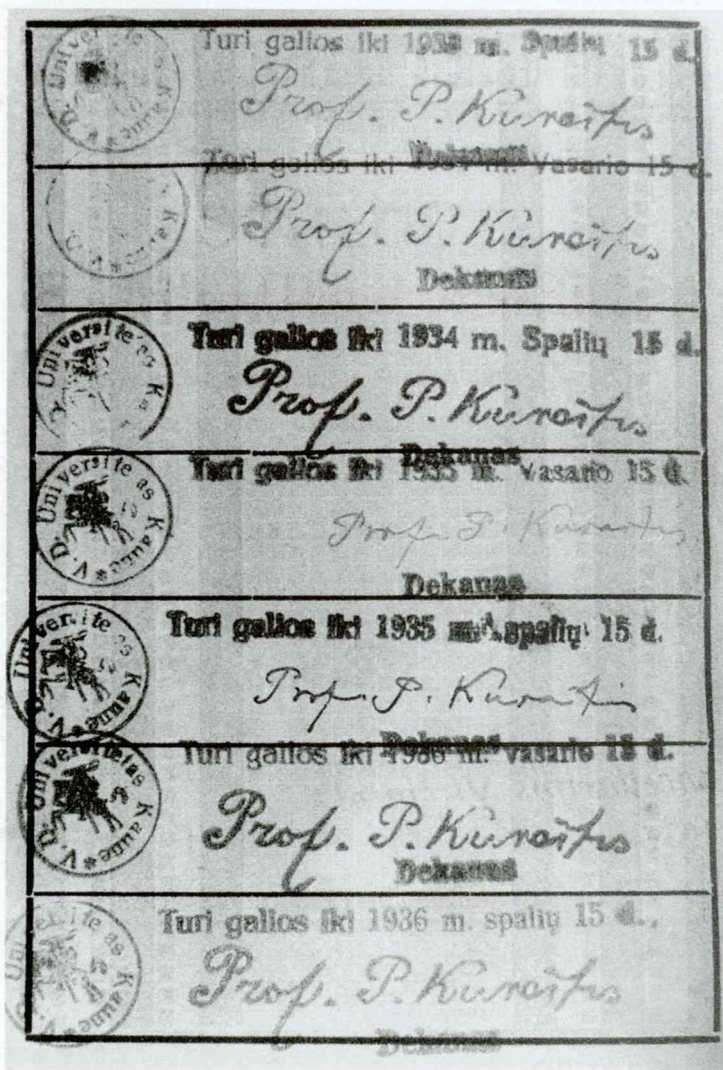 Turi galios iki 1933 m. Spalių 15 d.
Prof. P. Kuraitis
Dekanas
V. D. Universitetas Kaune *
Turi galios iki 1934 m. Vasario 15 d.
Prof. P. Kuraitis
Dekanas
V. D. Kaune *
Turi galios iki 1934 m. Spalių 15 d.
Prof. P. Kuraitis
Dekanas
Universitetas
Turi galios iki 1935 m. Vasario 15 d.
Prof. P. Kuraitis
Dekanas
V. D. Universitetas Kaune *
Turi galios iki 1935 m. spalių 15 d.
Prof. P. Kuraitis
Dekanas
V. D. Universitetas Kaune *
Turi galios iki 1936 m. vasario 15 d.
Prof. P. Kuraitis
Dekanas
V. D. Universitetas Kaune *
Turi galios iki 1936 m. spalių 15 d.
Prof. P. Kuraitis
Dekanas
V. D. Universitetas Kaune *